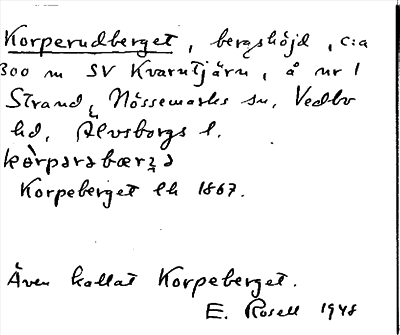 Korperudberget, bergshöjd, c:a
300 m SV Kvarntjärn, å nr 1
Strand, Nössemarks sn, Vedbo
hd, Älvsborgs l.
Korpeberget lk 1867.
Även kallat Korpeberget.
E. Rosell 1948